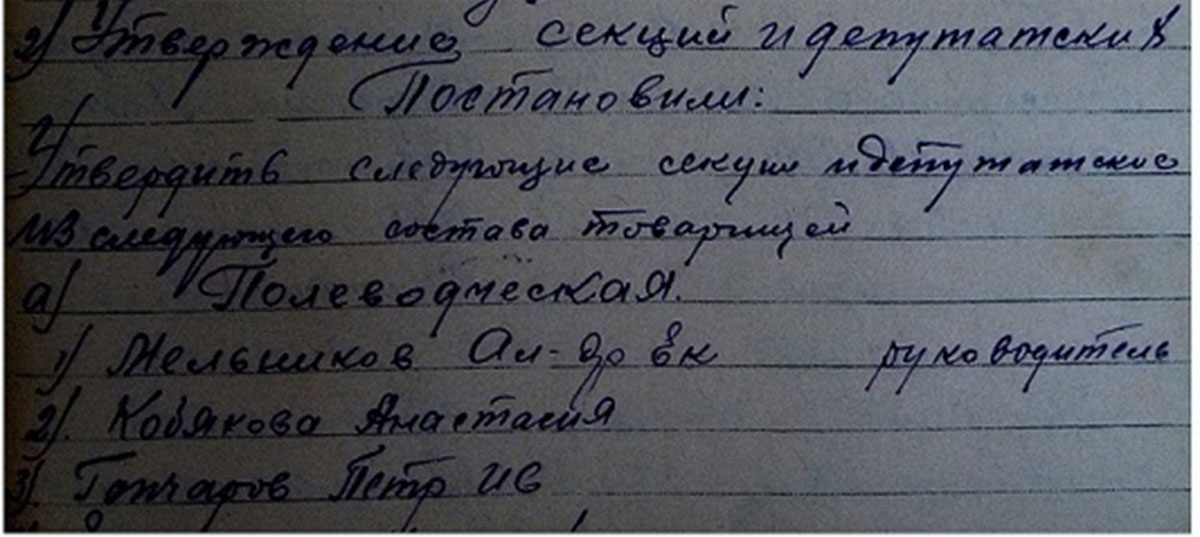 2) Утверждение секций и депутатских
Постановили:
Утвердить следующие секции и депутатские
из следующего состава товарищей
а) Полеводческая.
1) Мельников Ал-др Ек руководитель
2). Кобякова Анастасия
3) Гончаров Петр Ив